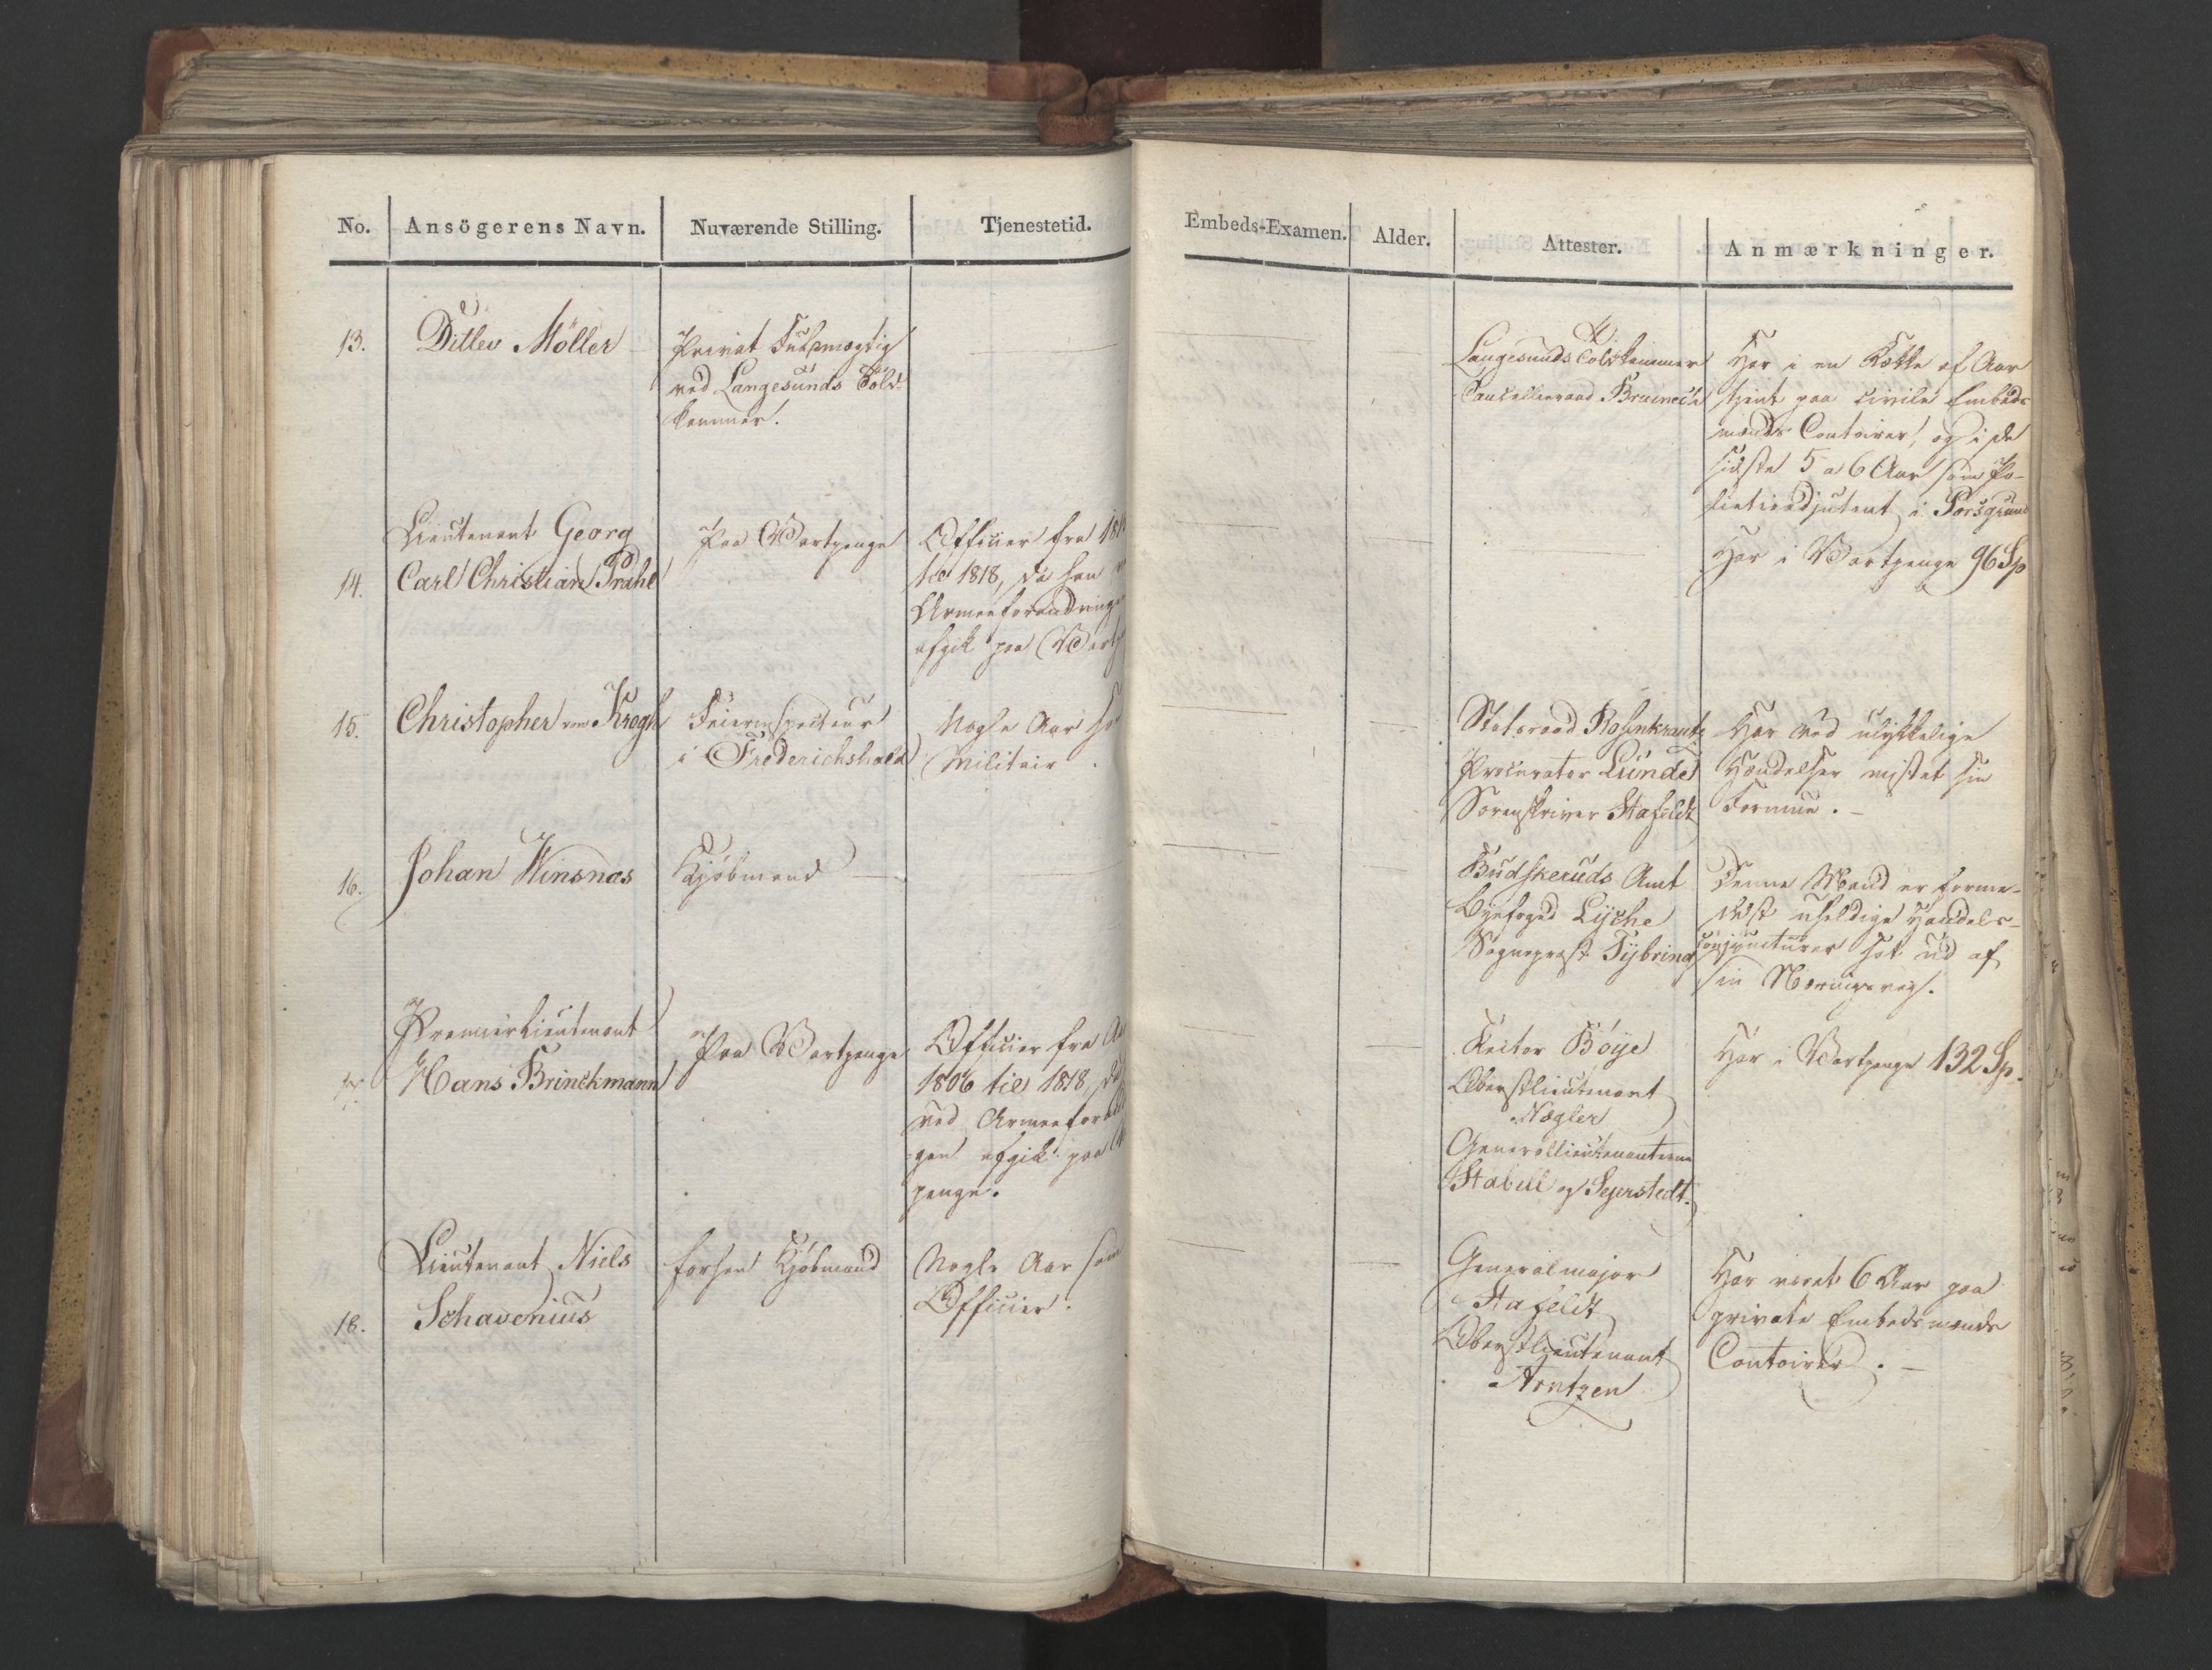 No.
Ansögerens Navn.
Nuværende Stilling.
Tjenestetid.
Embeds-Examen.
Alder.
Attester.
Anmærkninger.
13.
Ditlev Möller
Privat Fuldmægtig
ved Langesunds Told-
kammer.
Langesunds Toldkammer
Cancelleeraad
Har i en Række af Aar
tjent paa civile Embeds
mænds Contoirer, og i de
sidste 5 a 6 Aar som Po-
litieadjutant i Porsgrund
14.
Lieutenant Georg
Carl Christian Prahl
Paa Vartpenge
Officier fra
til 1818, da han
Armeeforandringen
afgik paa
Har i Vartpenge 96 Sp
15.
Christopher von Krogh
Veierinspecteur
i Frederichshald
Nogle Aar
Militair.
Statsraad Rosenkrantz
Procurator Lunde
Sorenskriver Stafeldt
Har ved ulykkelige
Hændelser mistet sin
Formue. -
16.
Johan Winsnæs
Kjöbmand
Budskeruds Amt
Byefoged Lyche
Sognepræst Tybring
Denne Mand er forme-
delst uheldige Handels-
conjuncturer sat ud af
sin Næringsvej.
17.
Premierlieutenant
Hans Brinckmann
Paa Vartpenge
Officier fra
1806 til 1818, da
ved
gen afgik paa
penge.
Rector Böye
Oberstlieutenant
Nægler
Generallieutenanterne
Stabell og Sejerstedt.
Har i Vartpenge 132 Sp.
18.
Lieutenant Niels
Schavenius
forhen Kjöbmand
Nogle Aar som
Officier.
Generalmajor
Stafeldt
Oberstlieutenant
Arntzen
Har været 6 Aar paa
private Embedsmænds
Contoirer. -